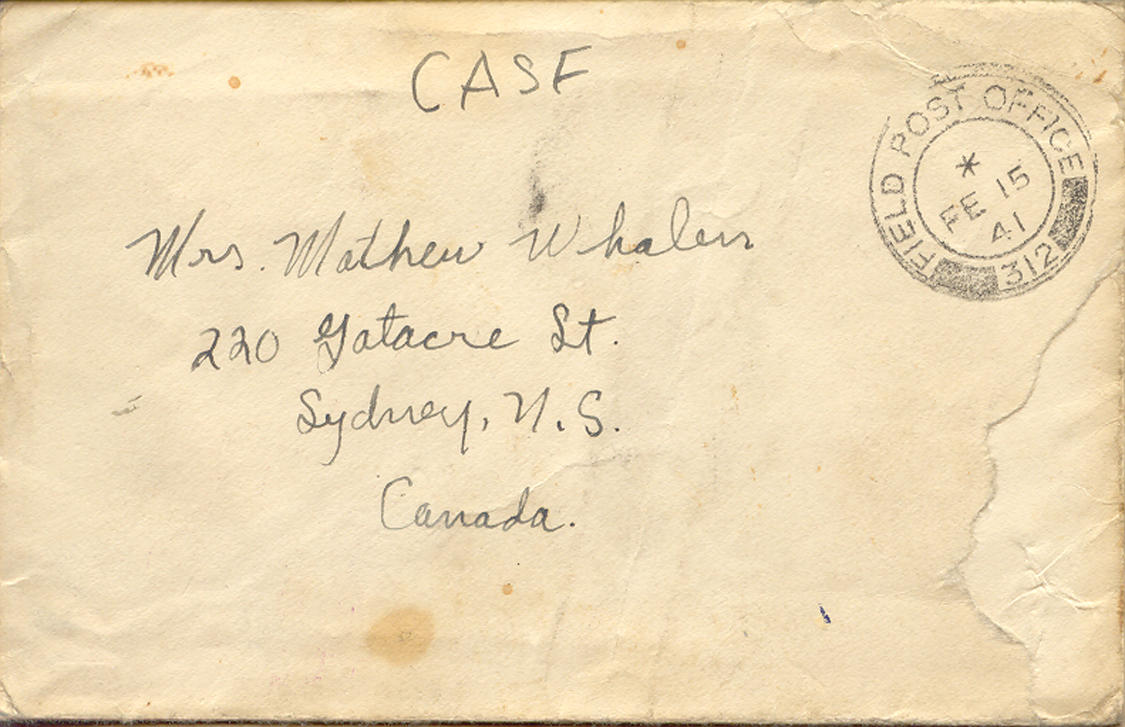 CASF
FIELD POST OFFICE
*
FE 15
41
312
Mrs. Mathew Whalen
220 Gatacre St.
Sydney, N.S.
Canada.